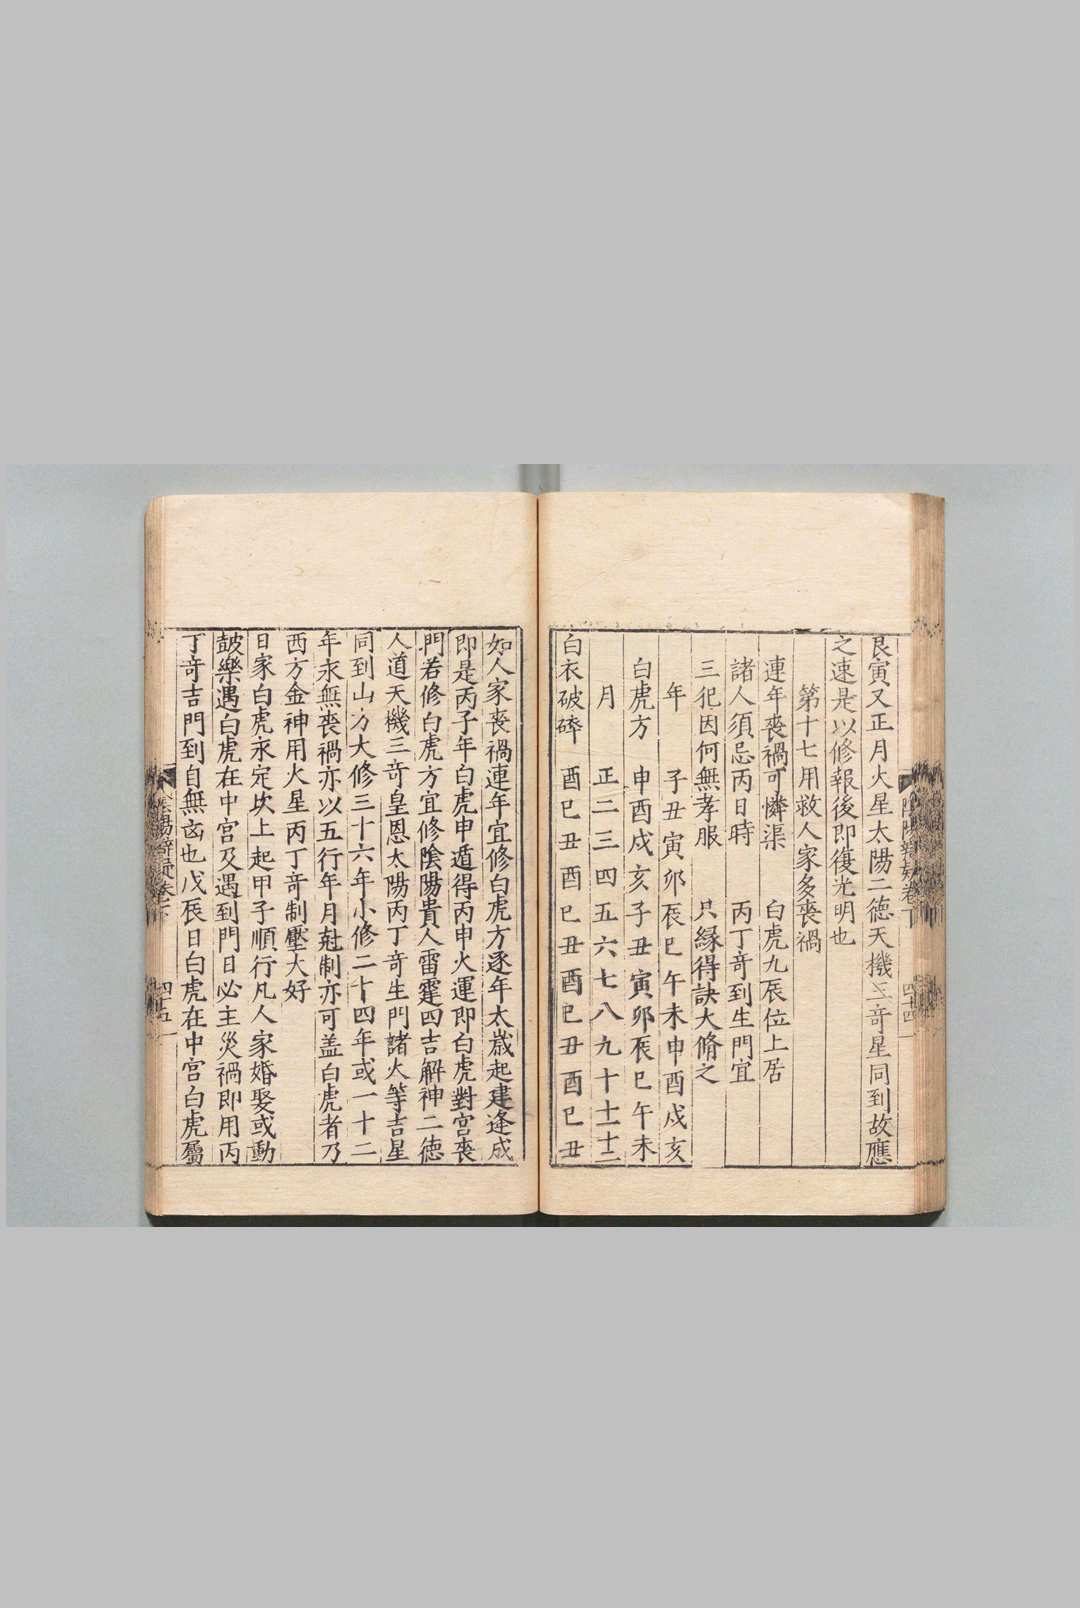 艮寅又正月火星太陽二德天機三竒星同到故應
之速是以修報後即復光明也
第十七用救人家多喪禍
連年喪禍可憐渠　白虎九辰位上居
諸人須忌丙日時　丙丁竒到生門宜
三犯因何無孝服　只緣得訣大脩之
年　子丑寅卯辰巳午未申酉戌亥
白虎方　申酉戌亥子丑寅卯辰巳午未
月　正二三四五六七八九十十一十二
白衣破碎　酉巳丑酉巳丑酉巳丑酉巳丑
陰陽辯疑卷下　四十四
如人家喪禍連年宜修白虎方逐年太歲起建逢成
即是丙子年白虎申遁得丙申火運即白虎對宫喪
門若修白虎方宜修陰陽貴人雷霆四吉解神二德
人道天機三竒皇恩太陽丙丁竒生門諸火等吉星
同到山方大修三十六年小修二十四年或一十二
年永無喪禍亦以五行年月尅制亦可盖白虎者乃
西方金神用火星丙丁竒制壓大好
日家白虎永定坎上起甲子順行凡人家婚娶或動
皷樂遇白虎在中宫及遇到門日必主災禍即用丙
丁竒吉門到自無凶也戊辰日白虎在中宫白虎屬
陰陽辯疑卷下　四十五